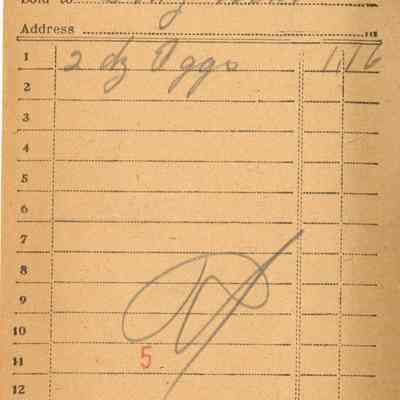 Sold to
Address
1 2 dz Eggs 1.16
2
3
4
5
6
7
8
9
10
11 5
12